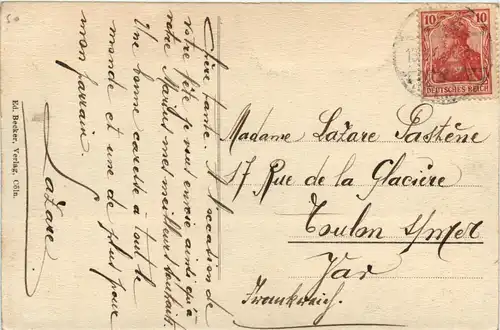 50
Chère tante. A l'occasion de
votre fête je vous envoie ainsi qu'à
notre Marius mes meilleurs souhaits.
Une bonne caresse à tout le
monde et une de plus pour
mon parrain
Lazare
Ed. Becker, Verlag, Cöln.
10 10
DEUTSCHES REICH
Madame Lazare Pastène
17 Rue de la Glacière
Toulon s/mer
Var
Frankreich.